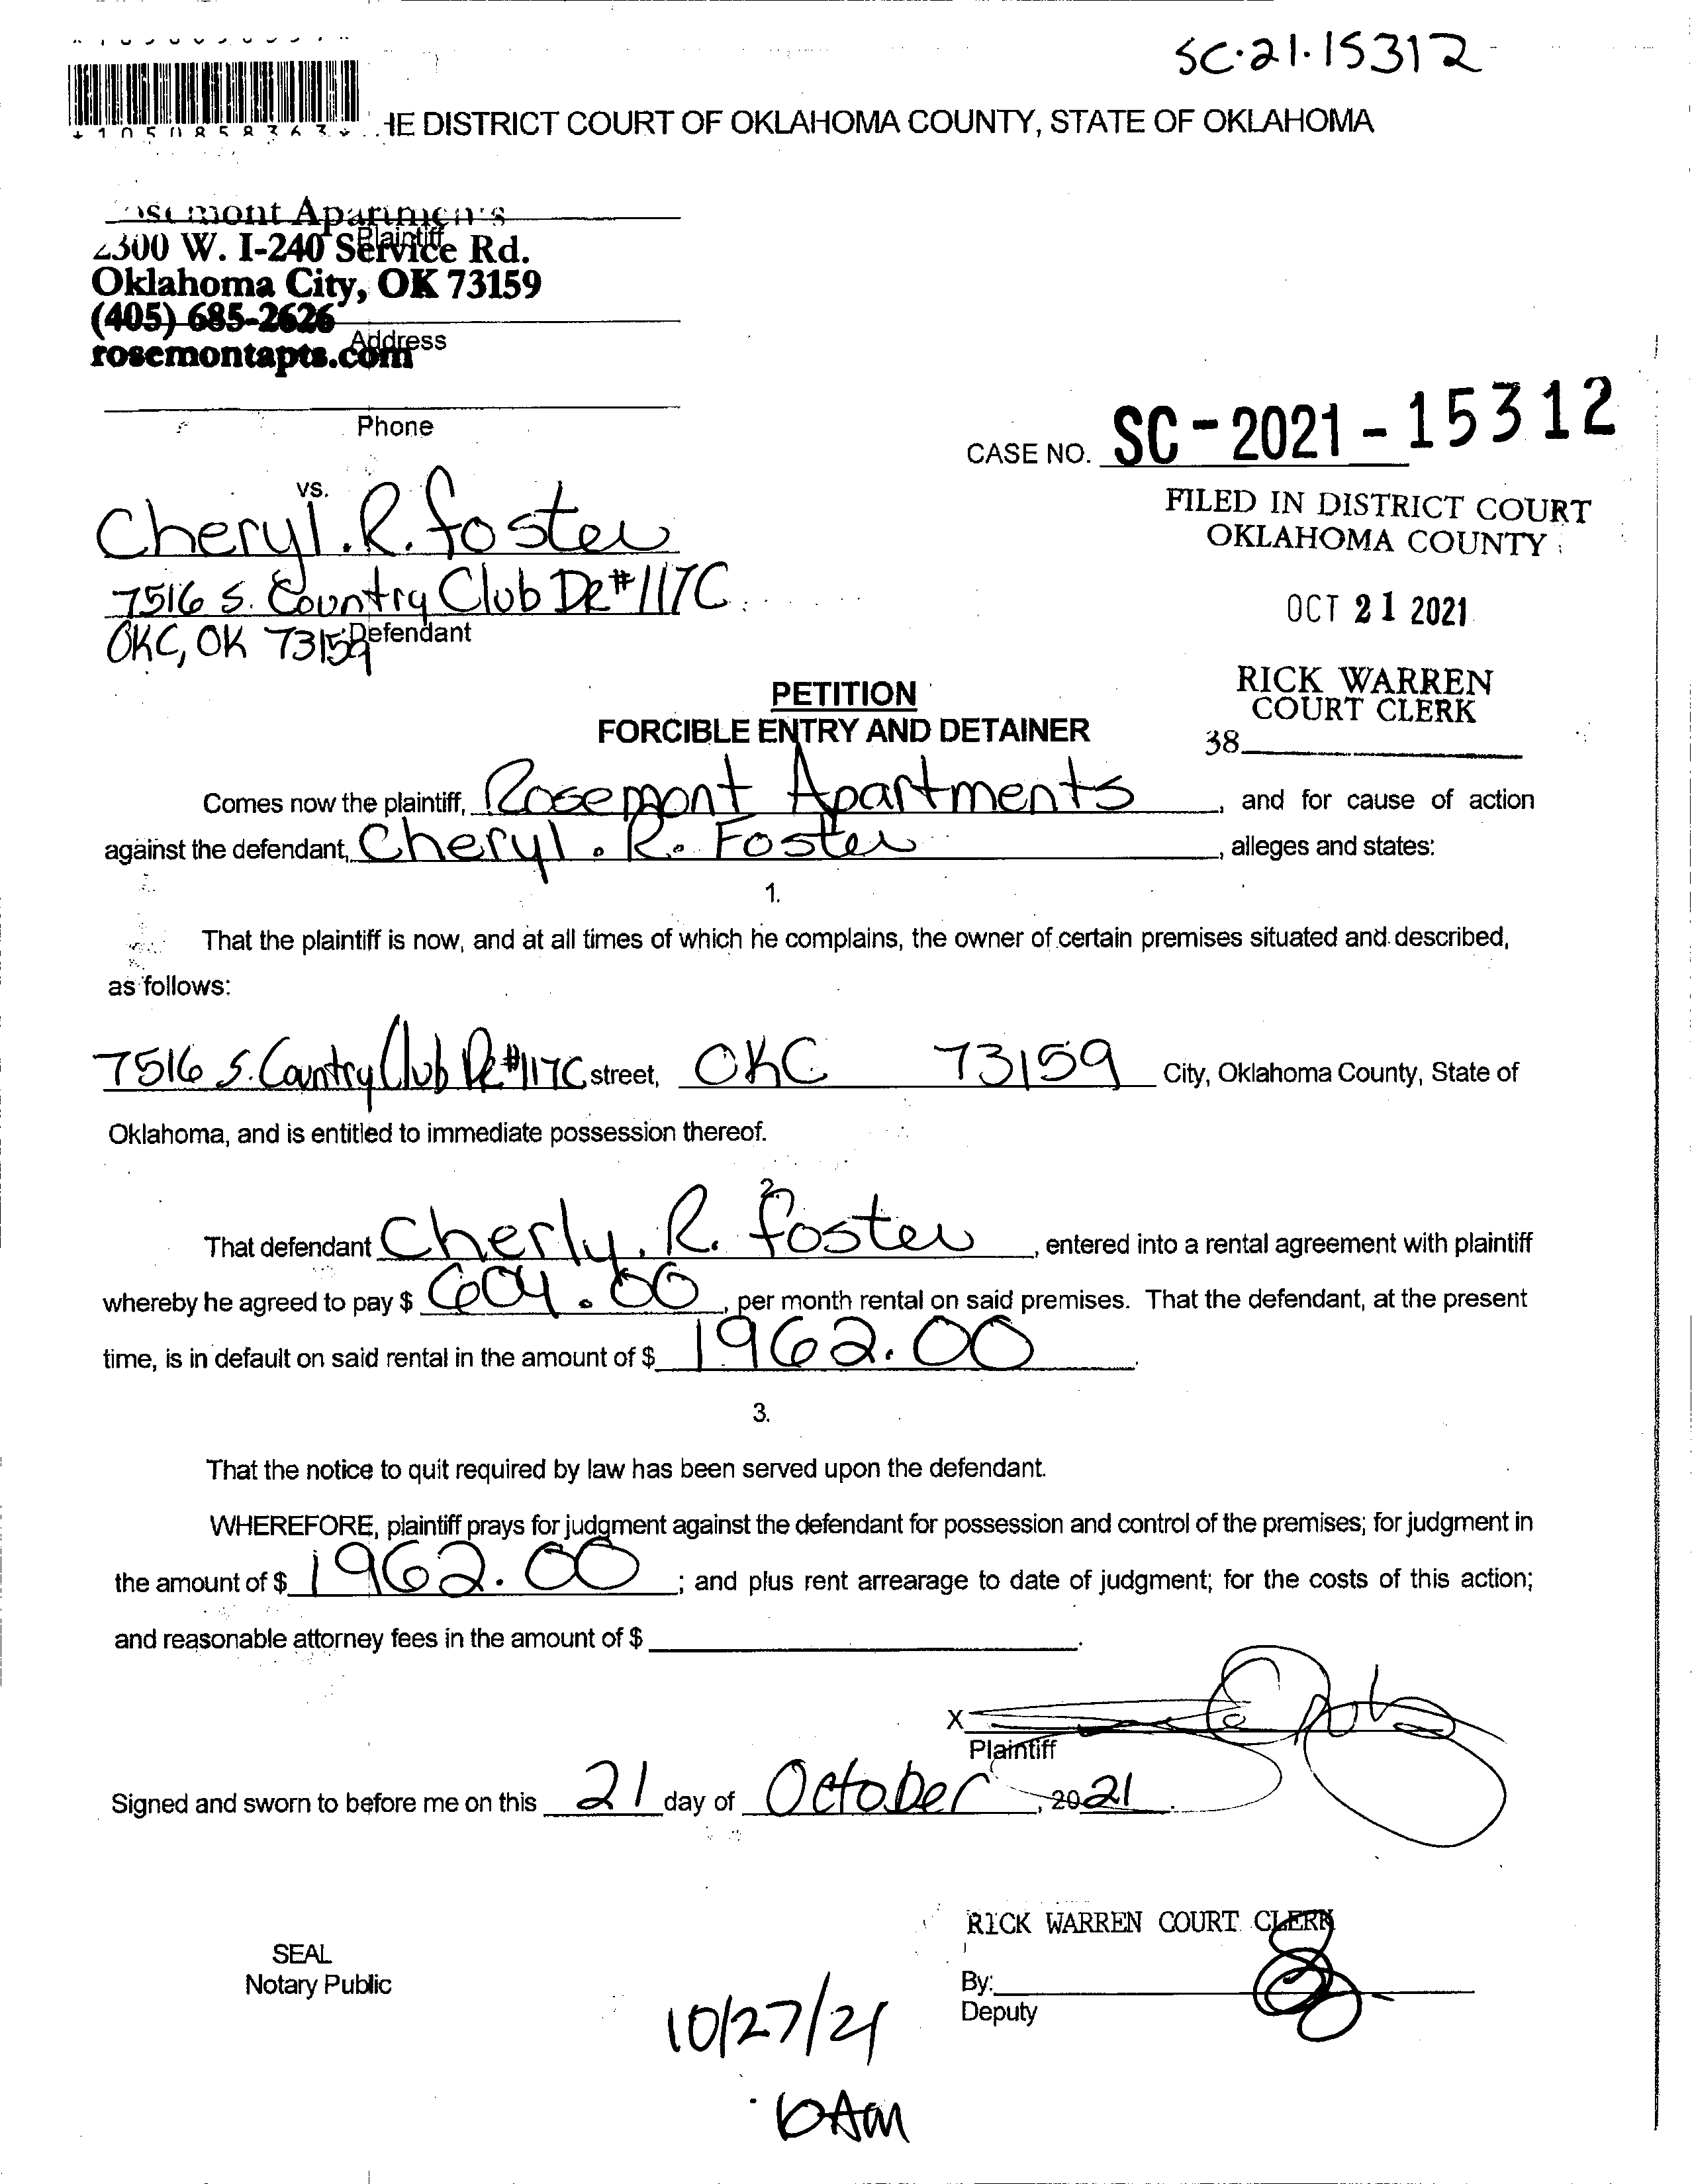 SC·21·15312
HE DISTRICT COURT OF OKLAHOMA COUNTY, STATE OF OKLAHOMA
Apartments
Plaintiff
2300 W. I-240 Service Rd.
Oklahoma City, OK 73159
(405) 685-2626
Address
rosemontapts.com
Phone
CASE NO. SC-2021-15312
vs.
Cheryl.R.foster
FILED IN DISTRICT COURT
OKLAHOMA COUNTY
7516 S. Country Club DR #117C
OCT 21 2021
OKC, OK 73159
Defendant
RICK WARREN
COURT CLERK
38
PETITION
FORCIBLE ENTRY AND DETAINER
Comes now the plaintiff, Rosemont Apartments, and for cause of action
against the defendant, Cheryl.R. Foster, alleges and states:
1.
That the plaintiff is now, and at all times of which he complains, the owner of certain premises situated and described,
as follows:
7516 S. Country Club DR #117C street, OKC 73159 City, Oklahoma County, State of
Oklahoma, and is entitled to immediate possession thereof.
2.
That defendant Cherly.R. foster, entered into a rental agreement with plaintiff
whereby he agreed to pay $ 604.00, per month rental on said premises. That the defendant, at the present
time, is in default on said rental in the amount of $ 1962.00.
3.
That the notice to quit required by law has been served upon the defendant.
WHEREFORE, plaintiff prays for judgment against the defendant for possession and control of the premises; for judgment in
the amount of $ 1962.00; and plus rent arrearage to date of judgment; for the costs of this action;
and reasonable attorney fees in the amount of $ .
X
Plaintiff
Signed and sworn to before me on this 21 day of October, 2021.
RICK WARREN COURT CLERK
SEAL
Notary Public
By:
Deputy
10/27/21